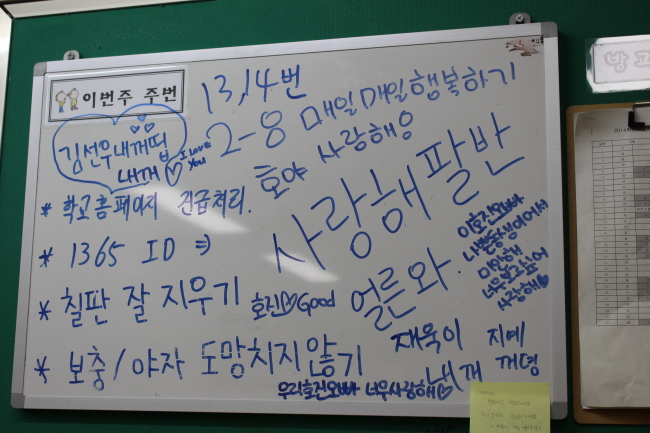 이번주 주번
13,14번
김선우내꺼띱
내꺼
I Love
You
2-8 매일매일행복하기
호야 사랑해용
* 학교홈페이지 긴급처리.
* 1365 ID ⇒
사랑해팔반
* 칠판 잘 지우기
호진♡Good
얼른와.
이호진오빠
나쁜동생이어서
미안해
너무보고싶어
사랑해♡
* 보충/야자 도망치지않기
재욱이 지예
내꺼 께명
우리호진오빠 너무사랑해♡
방과